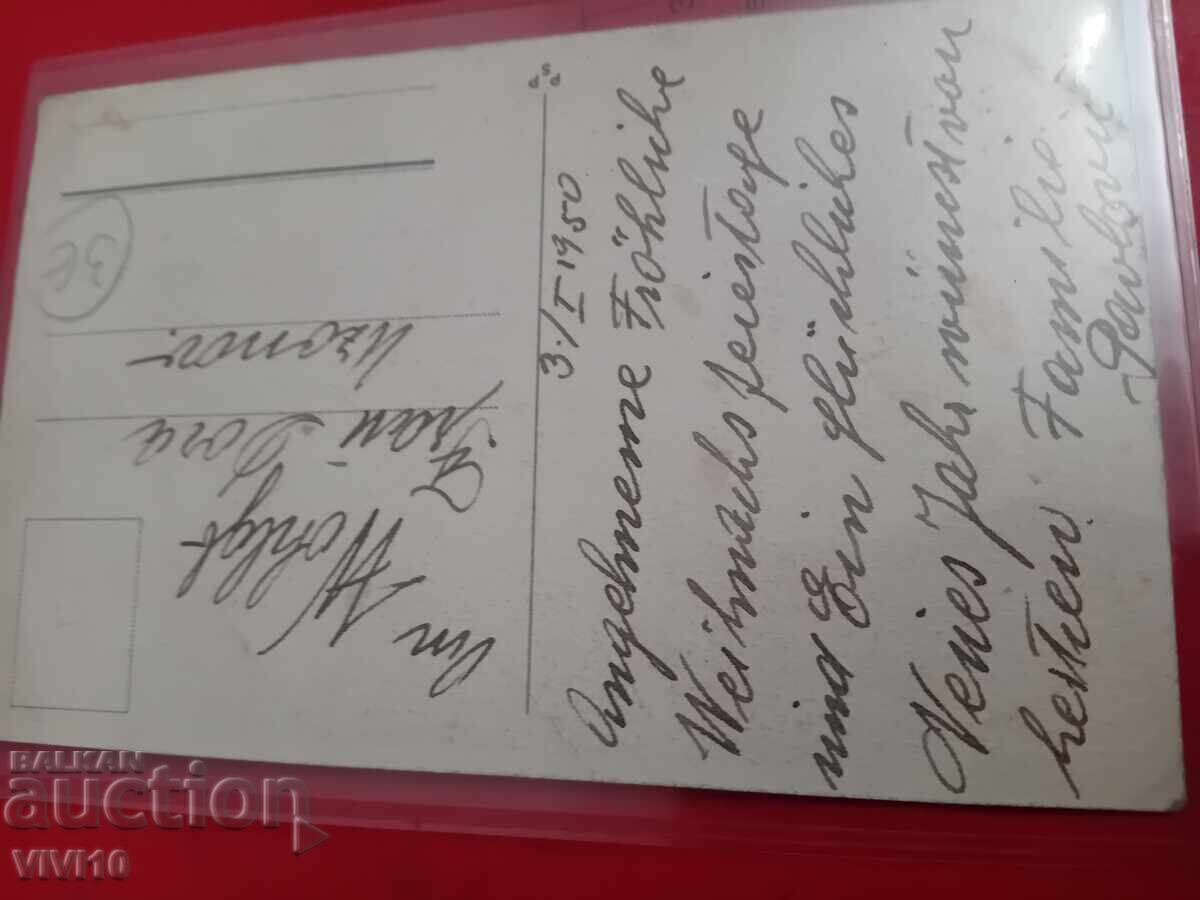 3./I 1950
Angehmene Fröhliche
Weihnachs feiertage
und Ein glückliches
Neues Jahr wünscht von
Familie
An Wohlgb
Frau Dora
3€
BALKAN
auction
VIVI10